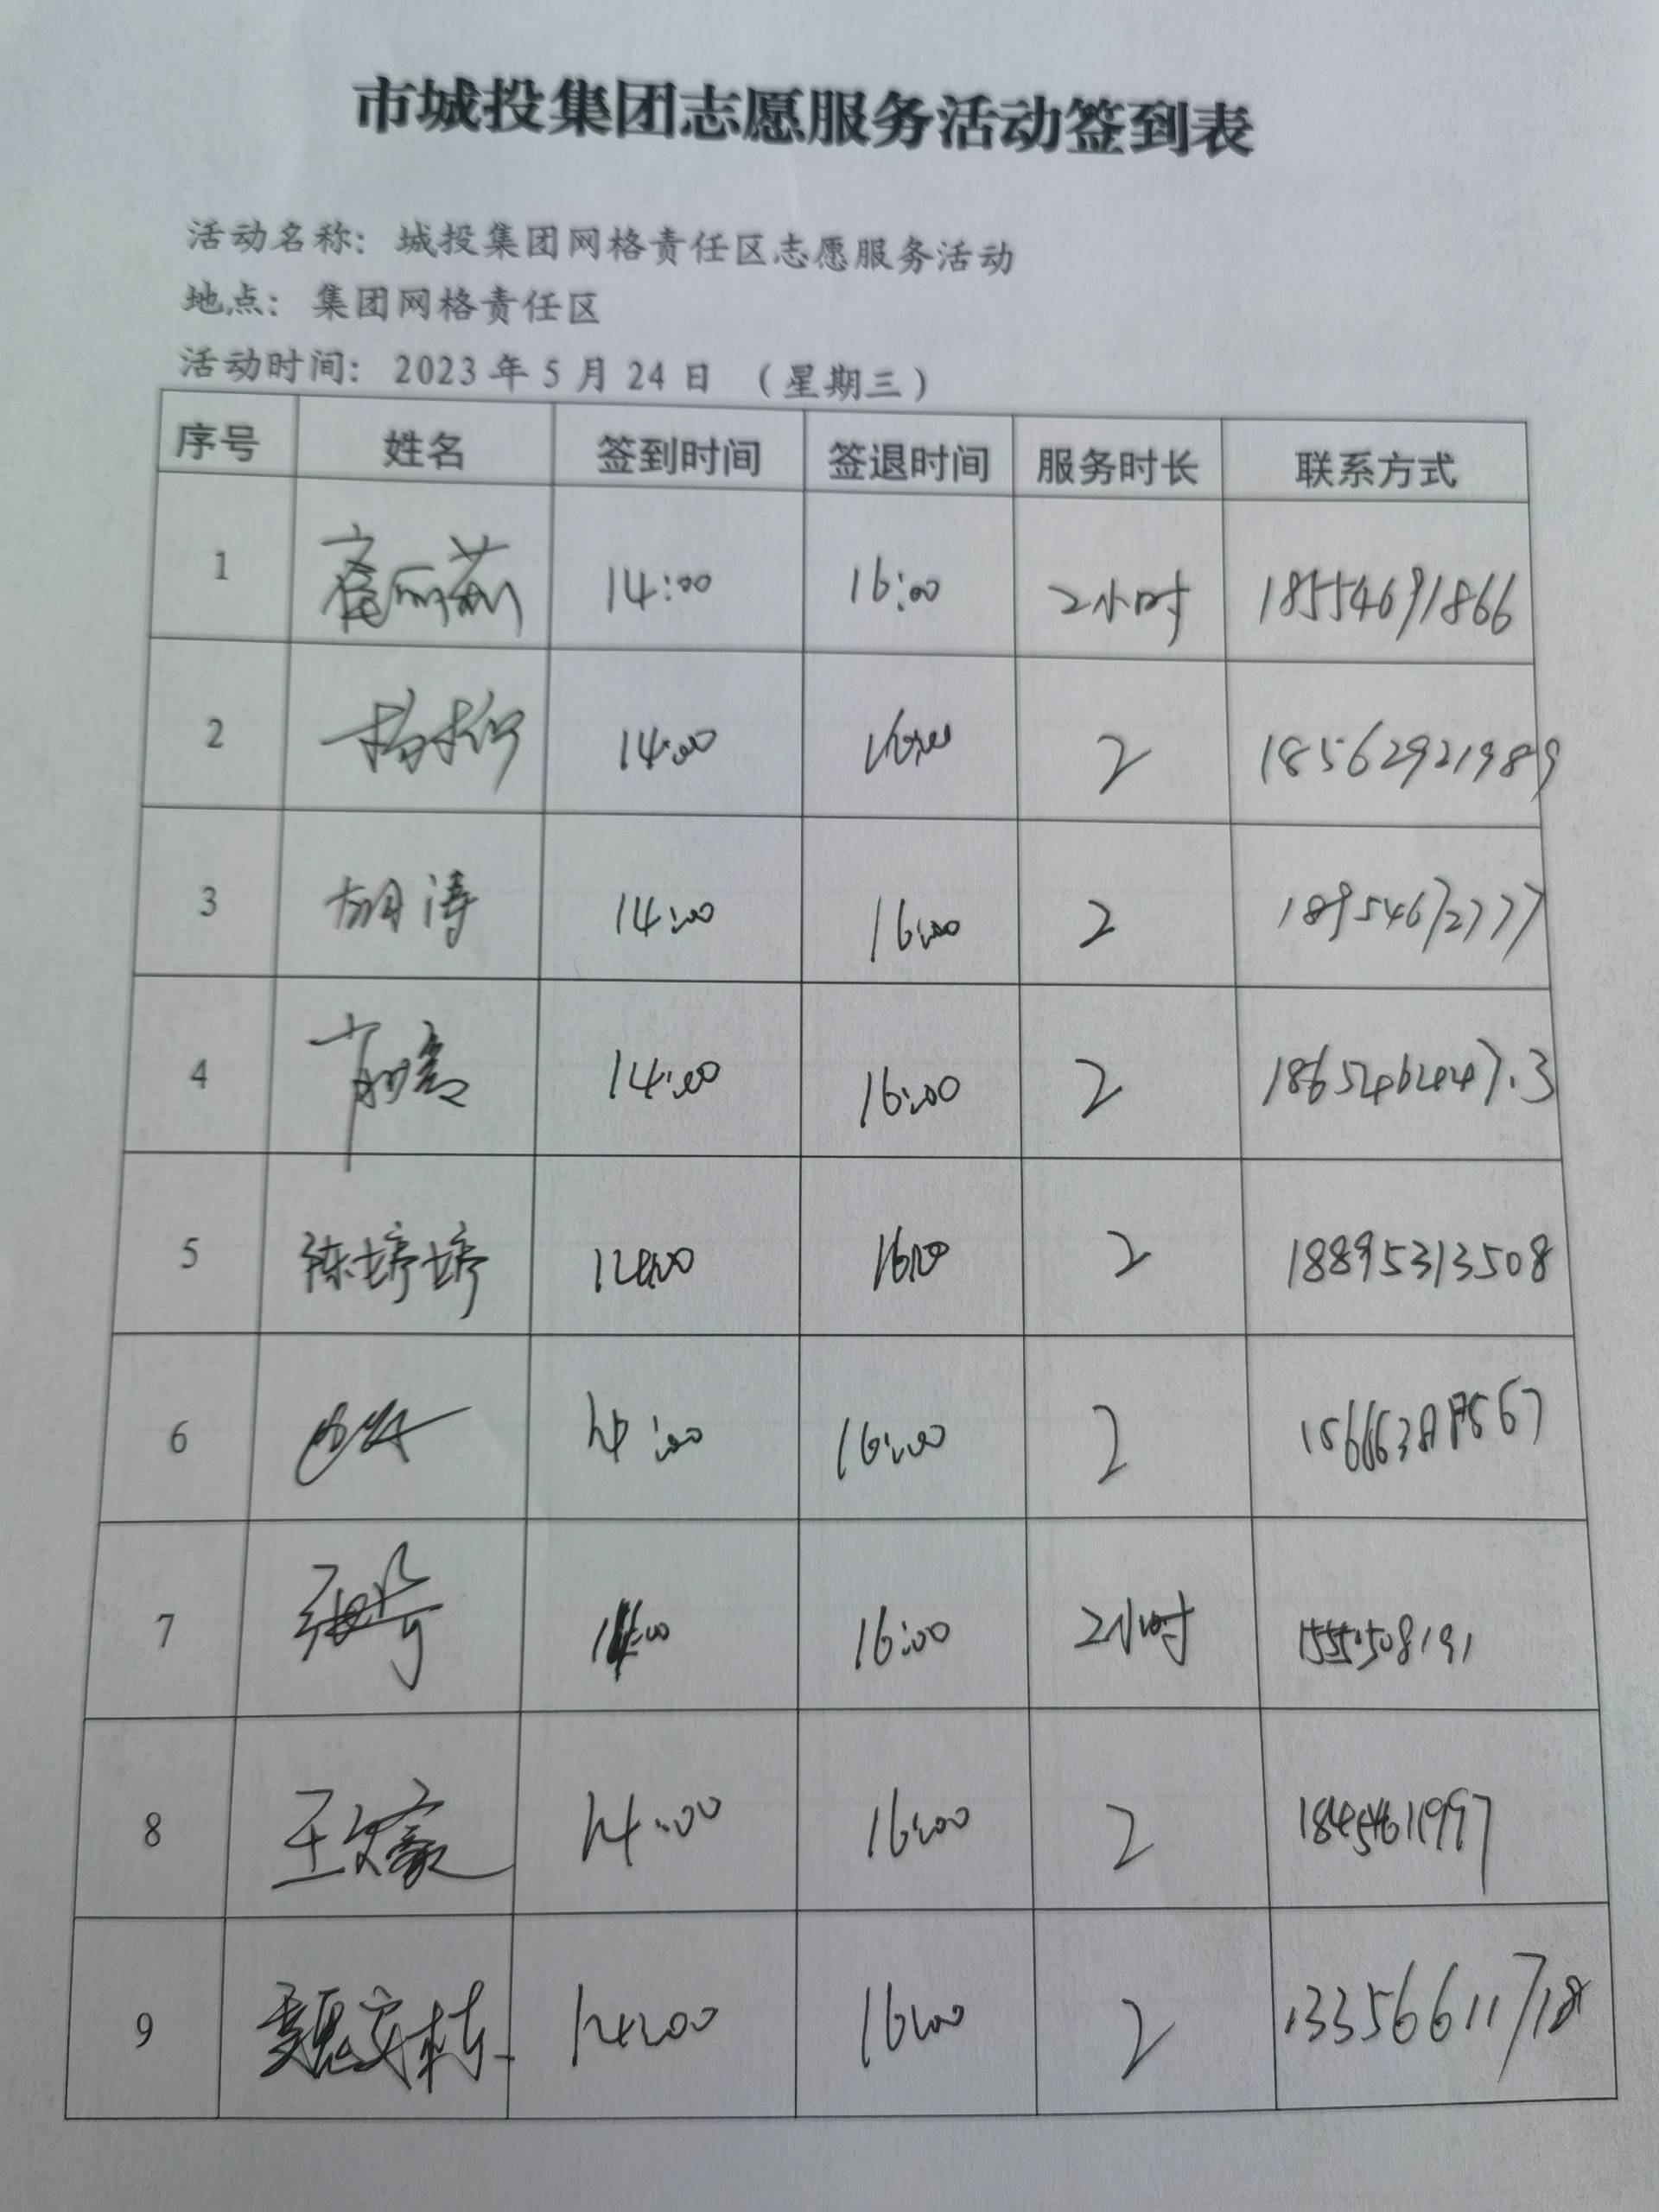 市城投集团志愿服务活动签到表
活动名称：城投集团网格责任区志愿服务活动
地点：集团网格责任区
活动时间：2023年5月24日 （星期三）
序号 姓名 签到时间 签退时间 服务时长 联系方式
1 14:00 16:00 2小时 18554691866
2 杨柳 14:00 16:00 2 18562921989
3 胡涛 14:00 16:00 2 18954672777
4 14:00 16:00 2
5 陈婷婷 14:00 16:00 2 18895313508
6 14:00 16:00 2
7 14:00 16:00 2小时
8 王文豪 14:00 16:00 2
9 魏安栋 14:00 16:00 2 13356611718